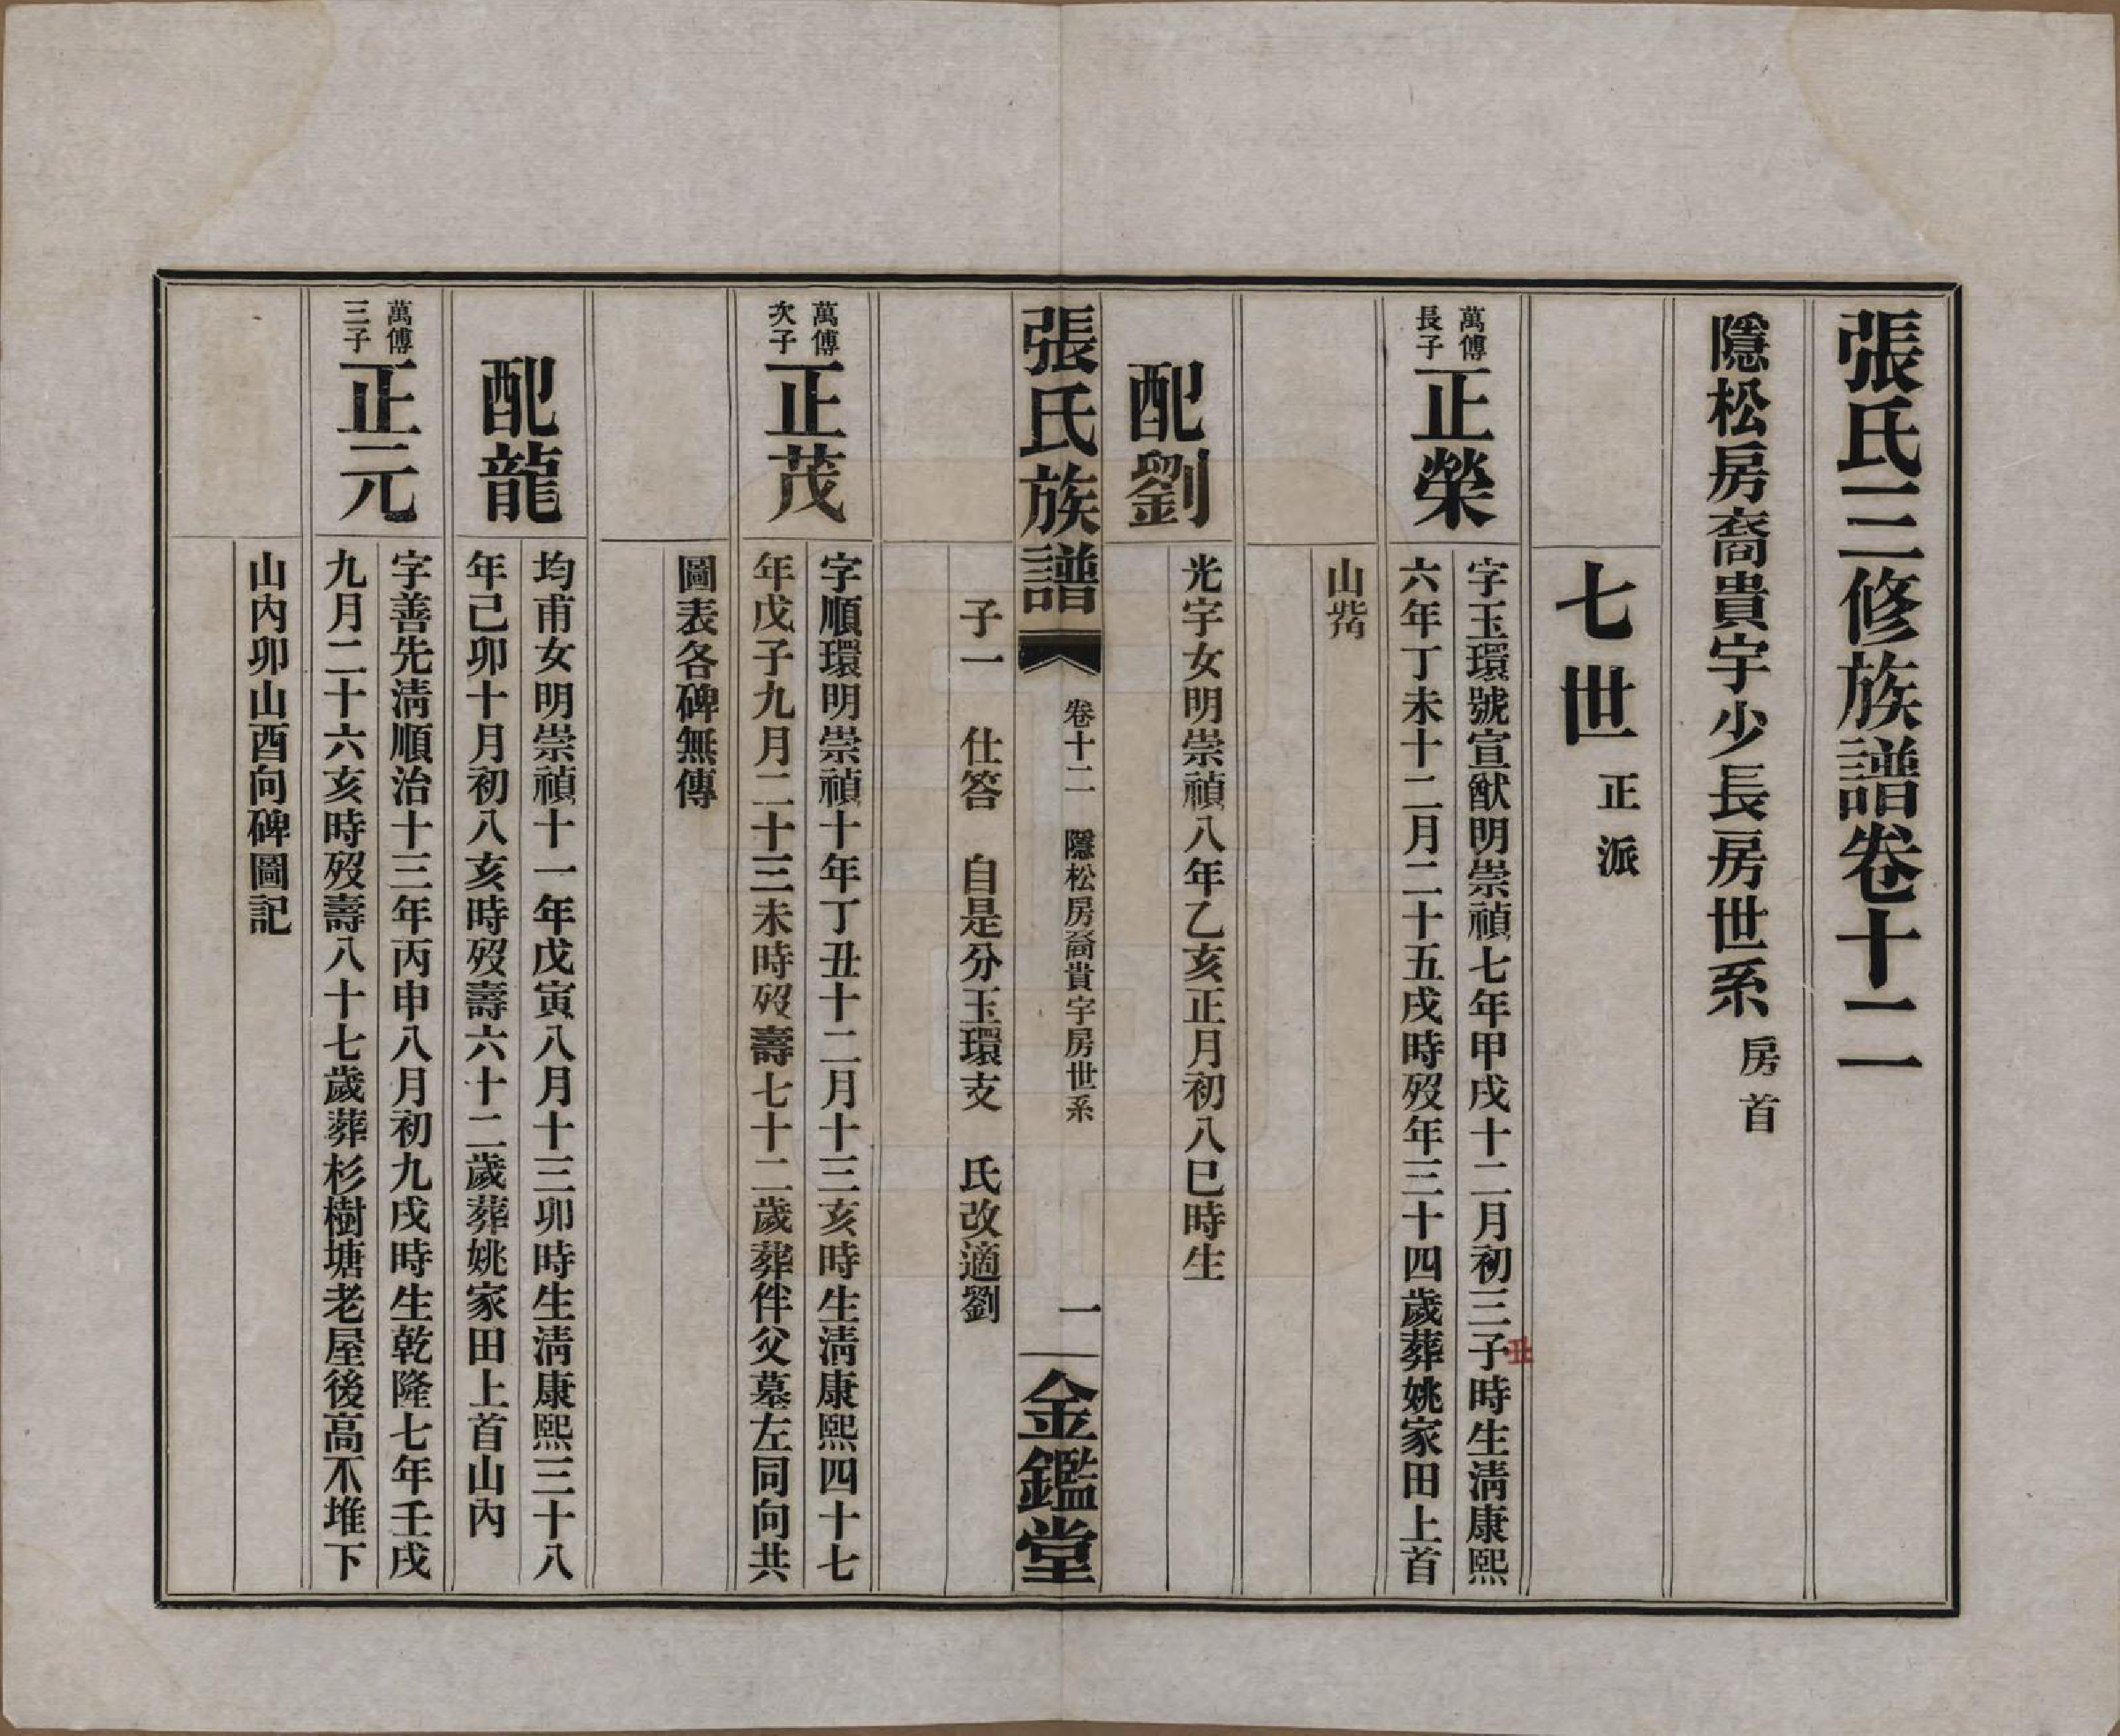 張氏三修族譜卷十二
隱松房裔貴宇少長房世系 房首
七世 正派
萬傅
長子
正榮
字玉環號宣猷明崇禎七年甲戌十二月初三子時生淸康熙
丑
六年丁未十二月二十五戌時歿年三十四歲葬姚家田上首
山嘴
配劉
光宇女明崇禎八年乙亥正月初八巳時生
張氏族譜
卷十二 隱松房裔貴宇房世系
一
金鑑堂
子一 仕答 自是分玉環支 氏改適劉
萬傅
次子
正茂
字順環明崇禎十年丁丑十二月十三亥時生淸康熙四十七
年戊子九月二十三未時歿壽七十二歲葬伴父墓左同向共
圖表各碑無傳
配龍
均甫女明崇禎十一年戊寅八月十三卯時生淸康熙三十八
年己卯十月初八亥時歿壽六十二歲葬姚家田上首山內
萬傅
三子
正元
字善先淸順治十三年丙申八月初九戌時生乾隆七年壬戌
九月二十六亥時歿壽八十七歲葬杉樹塘老屋後高不堆下
山內卯山酉向碑圖記